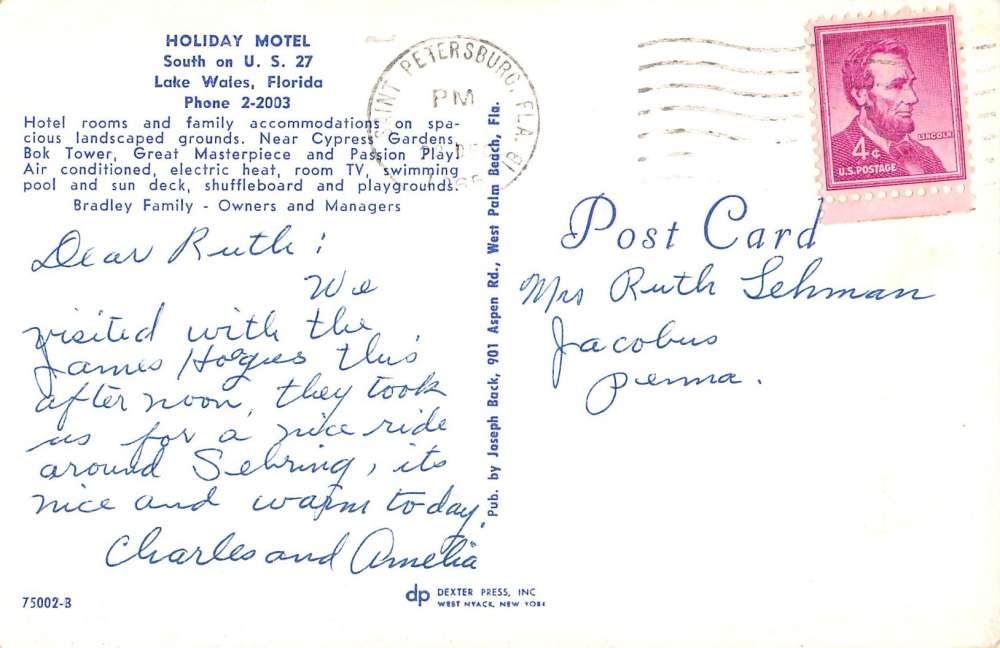 HOLIDAY MOTEL
South on U. S. 27
Lake Wales, Florida
Phone 2-2003
Hotel rooms and family accommodations on spa-
cious landscaped grounds. Near Cypress Gardens,
Bok Tower, Great Masterpiece and Passion Play.
Air conditioned, electric heat, room TV, swimming
pool and sun deck, shuffleboard and playgrounds.
Bradley Family - Owners and Managers
Dear Ruth:
We
visited with the
James Hogues this
after noon, they took
us for a nice ride
around Sebring, its
nice and warm today.
Charles and Amelia
75002-B
dp DEXTER PRESS, INC
WEST NYACK, NEW YORK
Pub. by Joseph Back, 901 Aspen Rd., West Palm Beach, Fla.
SAINT PETERSBURG, FLA.
PM
LINCOLN
4¢
U.S. POSTAGE
Post Card
Mrs Ruth Lehman
Jacobus
Penna.